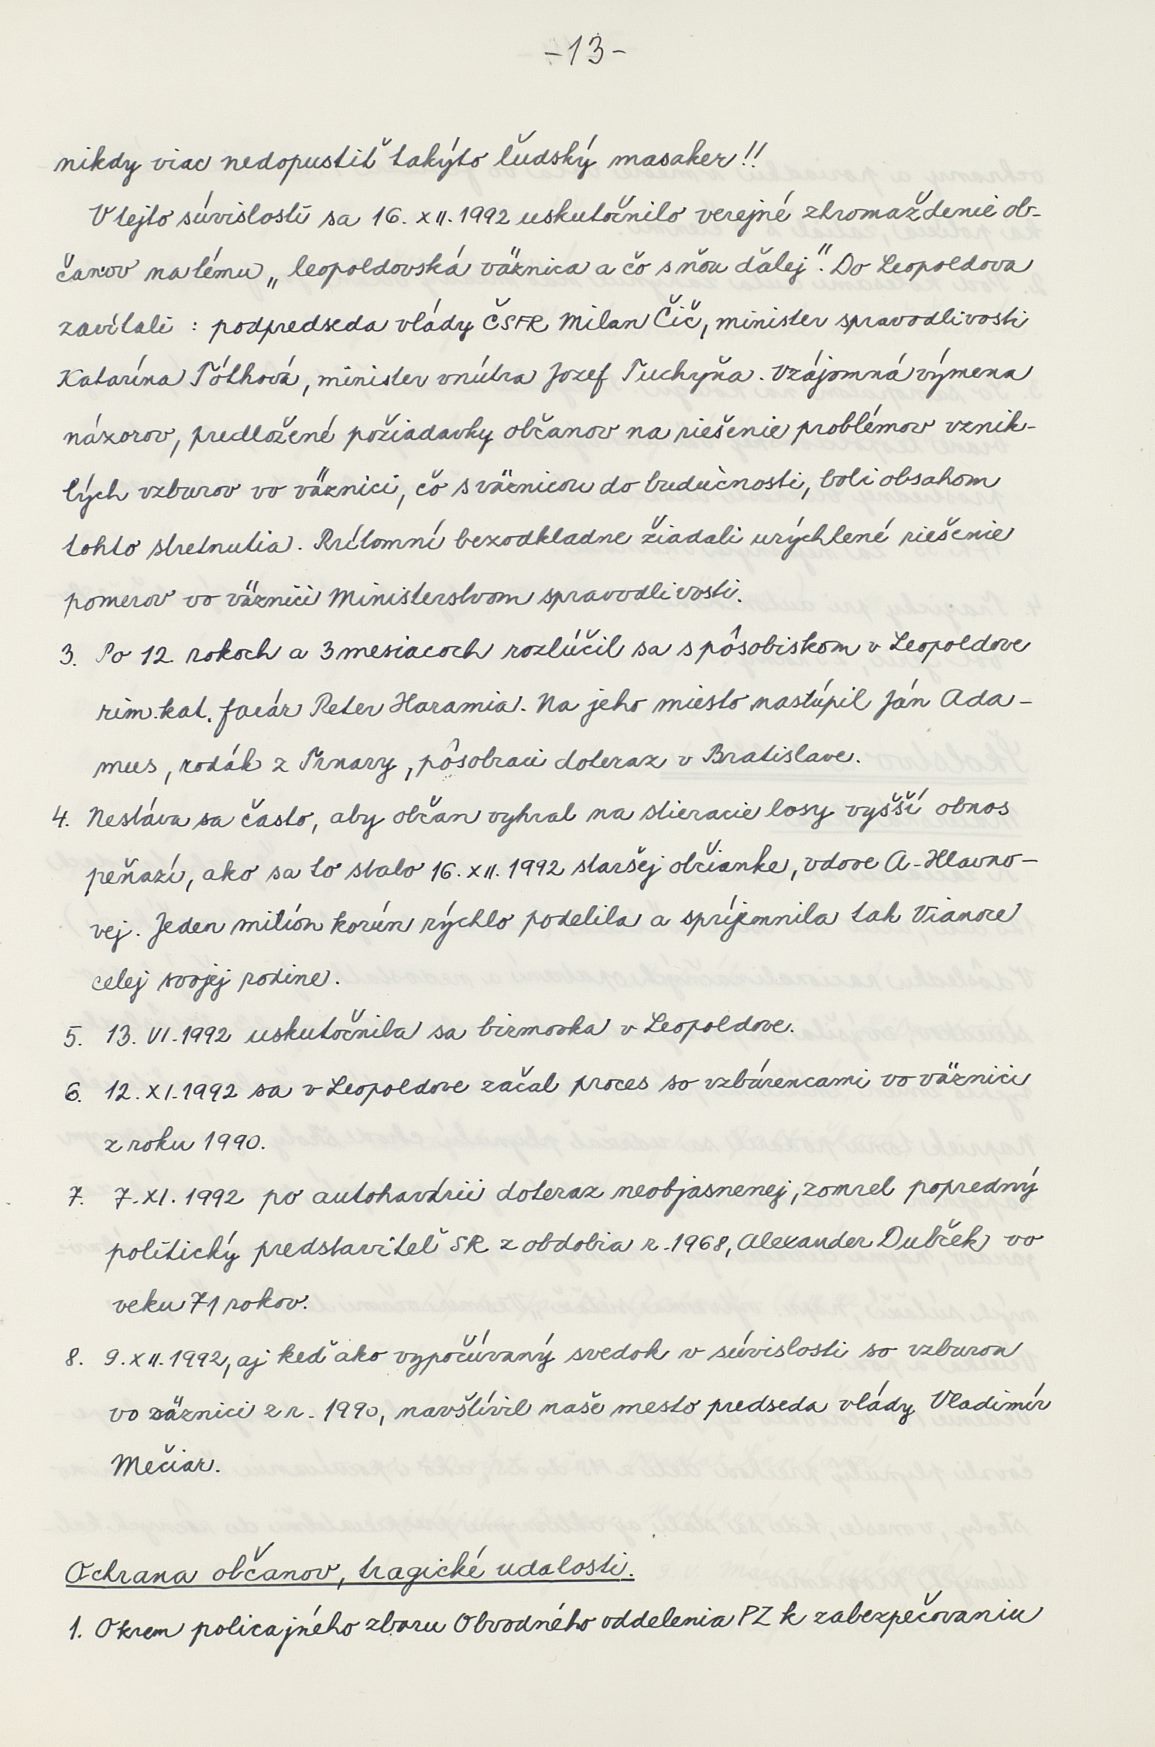 -13-
nikdy viac nedopustiť takýto ľudský masaker!!
V tejto súvislosti sa 16. XII. 1992 uskutočnilo verejné zhromaždenie ob-
čanov na tému „ leopoldovská väznica a čo s ňou ďalej". Do Leopoldova
zavítali : podpredseda vlády ČSFR Milan Čič, minister spravodlivosti
Katarína Tóthová, minister vnútra Jozef Tuchyňa. Vzájomná výmena
názorov, predložené požiadavky občanov na riešenie problémov vznik-
lých vzburov vo väznici, čo s väznicou do budúcnosti, boli obsahom
tohto stretnutia. Prítomní bezodkladne žiadali urýchlené riešenie
pomerov vo väznici Ministerstvom spravodlivosti.
3. Po 12 rokoch a 3 mesiacoch rozlúčil sa s pôsobiskom v Leopoldove
rím.kat. farár Peter Haramia. Na jeho miesto nastúpil Ján Ada-
mus, rodák z Trnavy, pôsobiaci doteraz v Bratislave.
4. Nestáva sa často, aby občan vyhral na stieracie losy vyšší obnos
peňazí, ako sa to stalo 16. XII. 1992 staršej občianke, vdove A. Hlavno-
vej. Jeden milión korún rýchlo podelila a spríjemnila tak Vianoce
celej svojej rodine.
5. 13. VI. 1992 uskutočnila sa birmovka v Leopoldove.
6. 12. XI. 1992 sa v Leopoldove začal proces so vzbúrencami vo väznici
z roku 1990.
7. 7. XI. 1992 po autohavárii doteraz neobjasnenej, zomrel popredný
politický predstaviteľ SR z obdobia r. 1968, Alexander Dubček vo
veku 71 rokov.
8. 9. XII. 1992, aj keď ako vypočúvaný svedok v súvislosti so vzburou
vo väznici z r. 1990, navštívil naše mesto predseda vlády Vladimír
Mečiar.
Ochrana občanov, tragické udalosti.
1. Okrem policajného zboru Obvodného oddelenia PZ k zabezpečovaniu